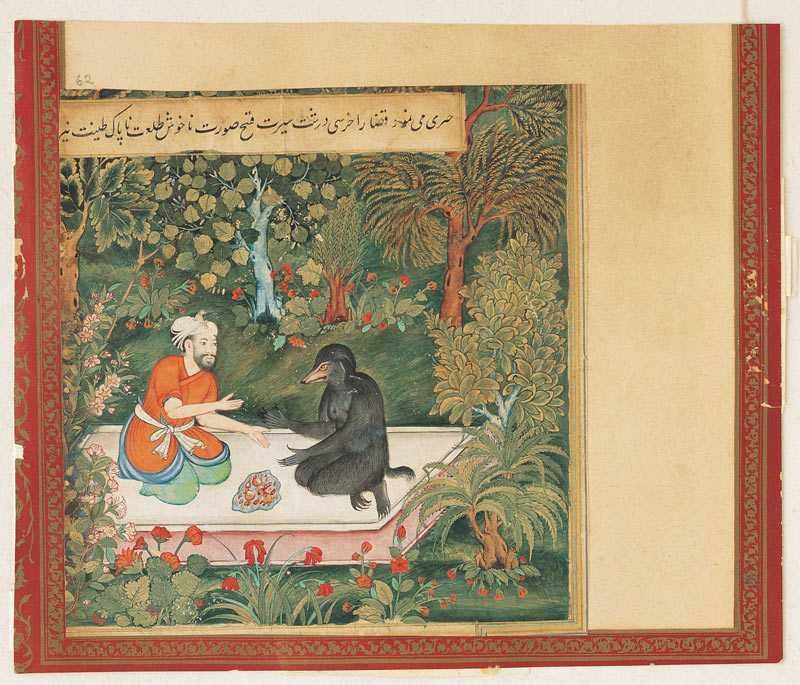 62
صری می نمود قضا را خرسی درشت سیرت قبیح صورت ناخوش طلعت ناپاک طینت نیز